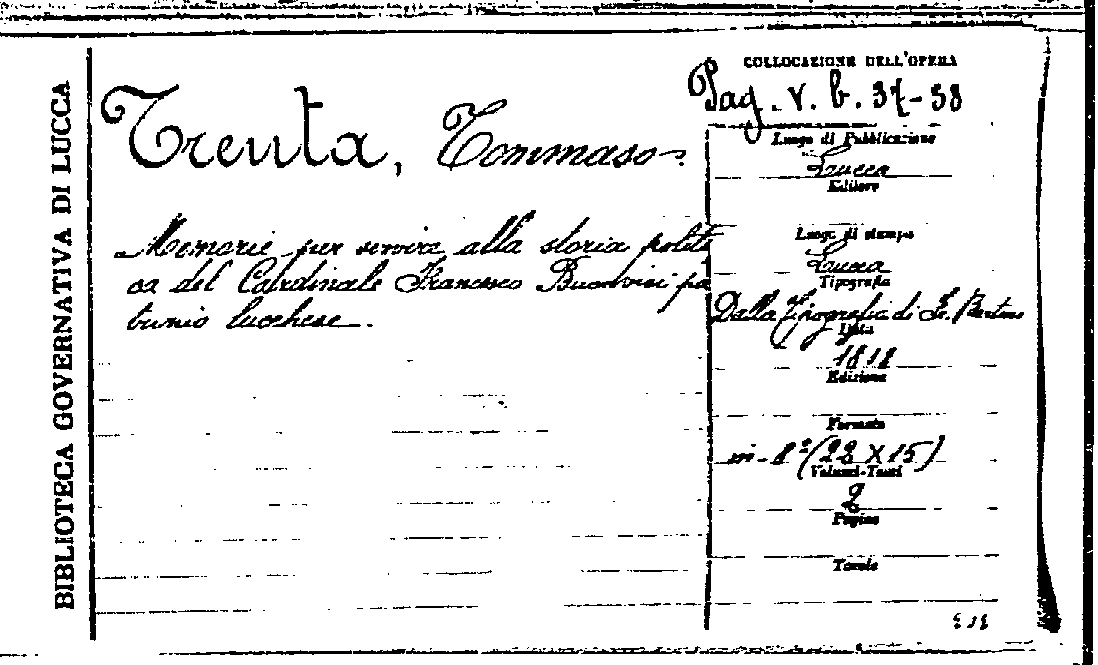 BIBLIOTECA GOVERNATIVA DI LUCCA
Trenta, Tommaso
Memorie per servire alla storia politi
ca del Cardinale Francesco Buonvisi pa
trizio lucchese.
COLLOCAZIONE DELL'OPERA
Pag. V. b. 37-38
Luogo di Pubblicazione
Lucca
Editore
Luogo di stampa
Lucca
Tipografia
Dalla Tipografia di Fr. Bertini
Data
1818
Edizione
Formato
in-8º (22 X 15)
Volumi-Tomi
2
Pagine
Tavole